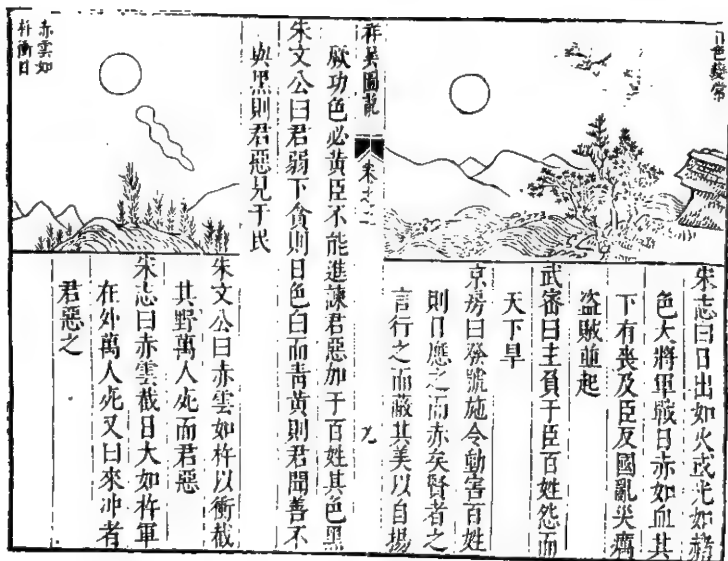 日色變常
宋志曰日出如火或光如赭
色大將軍戰日赤如血其
下有喪及臣反國亂災癘
盜賊並起
武密曰主負于臣百姓怨而
天下旱
京房曰發號施令動害百姓
則日應之而赤矣賢者之
言行之而蔽其美以自揚
祥異圖說
卷之二
九
厥功色必黃臣不能進諫君惡加于百姓其色黑
朱文公曰君弱下貪則日色白而青黃則君聞善不
與黑則君惡見于民
赤雲如
杵衝日
朱文公曰赤雲如杵以衝截
其野萬人死而君惡
宋志曰赤雲截日大如杵軍
在外萬人死又曰來冲者
君惡之